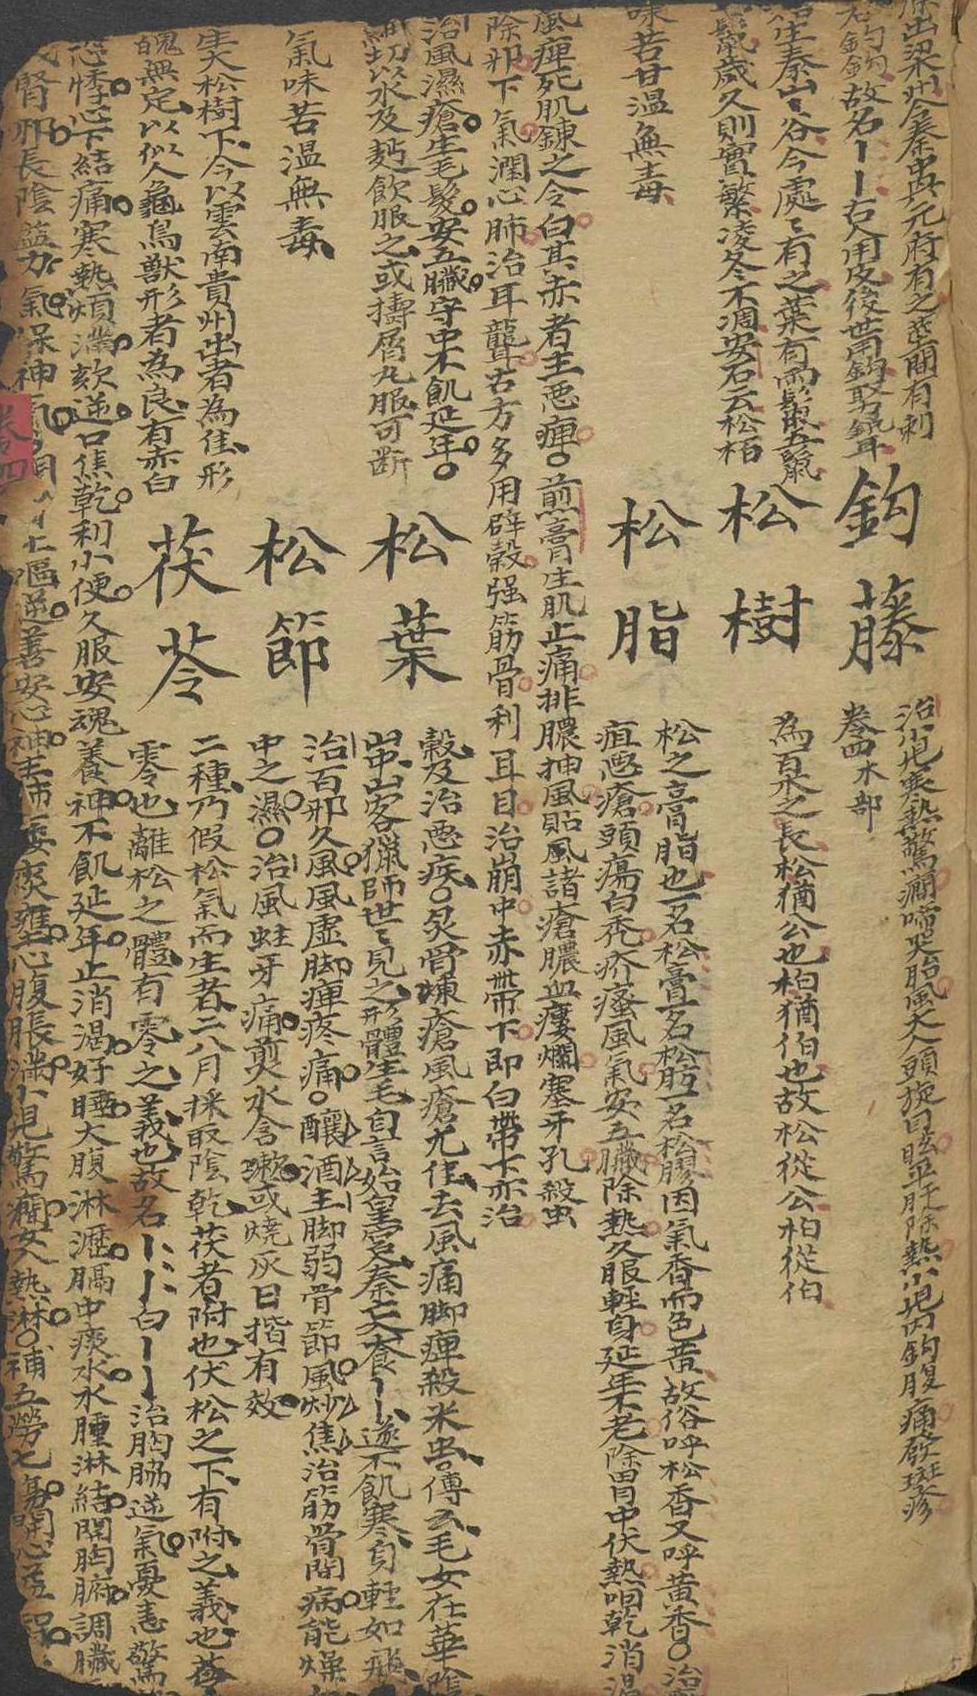 原出梁州今秦中興元府有之莖間有刺
若鈎鈎故名丨丨古人用皮後世用鈎取銳耳
鈎藤
治小兒寒熱驚癇啼哭治胎風大人頭旋目眩平肝除熱小兒內鈎腹痛發斑疹
卷四木部
生秦山山谷今處處有之葉有兩鬣五鬣
鬣歲久則實繁凌冬不凋安石云松栢
松樹
為百木之長松猶公也柏猶伯也故松從公柏從伯
味苦甘溫無毒
松脂
松之膏脂也一名松膏一名松肪一名松膠因氣香而色黃故俗呼松香又呼黃香
疽惡瘡頭瘍白禿疥瘙風氣安五臟除熱久服輕身延年不老除胃中伏熱咽乾消渴
風痺死肌鍊之令白其赤者主惡痺煎膏生肌止痛排膿抽風貼風諸瘡膿血瘻爛塞牙孔殺虫
除邪下氣潤心肺治耳聾古方多用辟穀强筋骨利耳目治崩中赤帶下即白帶下亦治
治風濕瘡生毛髮安五臟守中不飢延年
細切以水及麪飲服之或擣屑丸服可斷
松葉
穀及治惡疾炙骨凍瘡風瘡尤佳去風痛脚痺殺米虫傳云毛女在華陰
山中山客獵師世世見之形體生毛自言始皇宮秦亡入食丨丨遂不飢寒身輕如飛
氣味苦溫無毒
松節
治百邪久風風虛脚痺疼痛釀酒主脚弱骨節風炒焦治筋骨間病能燥
中之濕治風蛀牙痛煎水含漱或燒灰日揩有效
生大松樹下今以雲南貴州出者為佳形
塊無定以似人龜鳥獸形者為良有赤白
茯苓
二種乃假松氣而生者二八月採取陰乾茯者附也伏松之下有附之義也苓
零也離松之體有零之義也故名丨丨白丨丨治胸脇逆氣憂恚驚
恐悸心下結痛寒熱煩滿欬逆口焦乾利小便久服安魂養神不飢延年止消渴好睡大腹淋瀝膈中痰水水腫淋結開胸腑調臟
腎邪長陰益力氣保神 嘔逆善安心神主肺痿痰壅心腹脹滿小兒驚癇女人熱淋補五勞七傷開心益
卷四